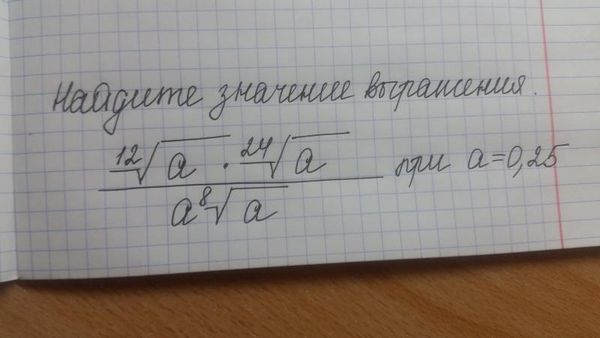 Найдите значение выражения.
\frac{\sqrt[12]{a} \cdot \sqrt[24]{a}}{a\sqrt[8]{a}} при a=0,25